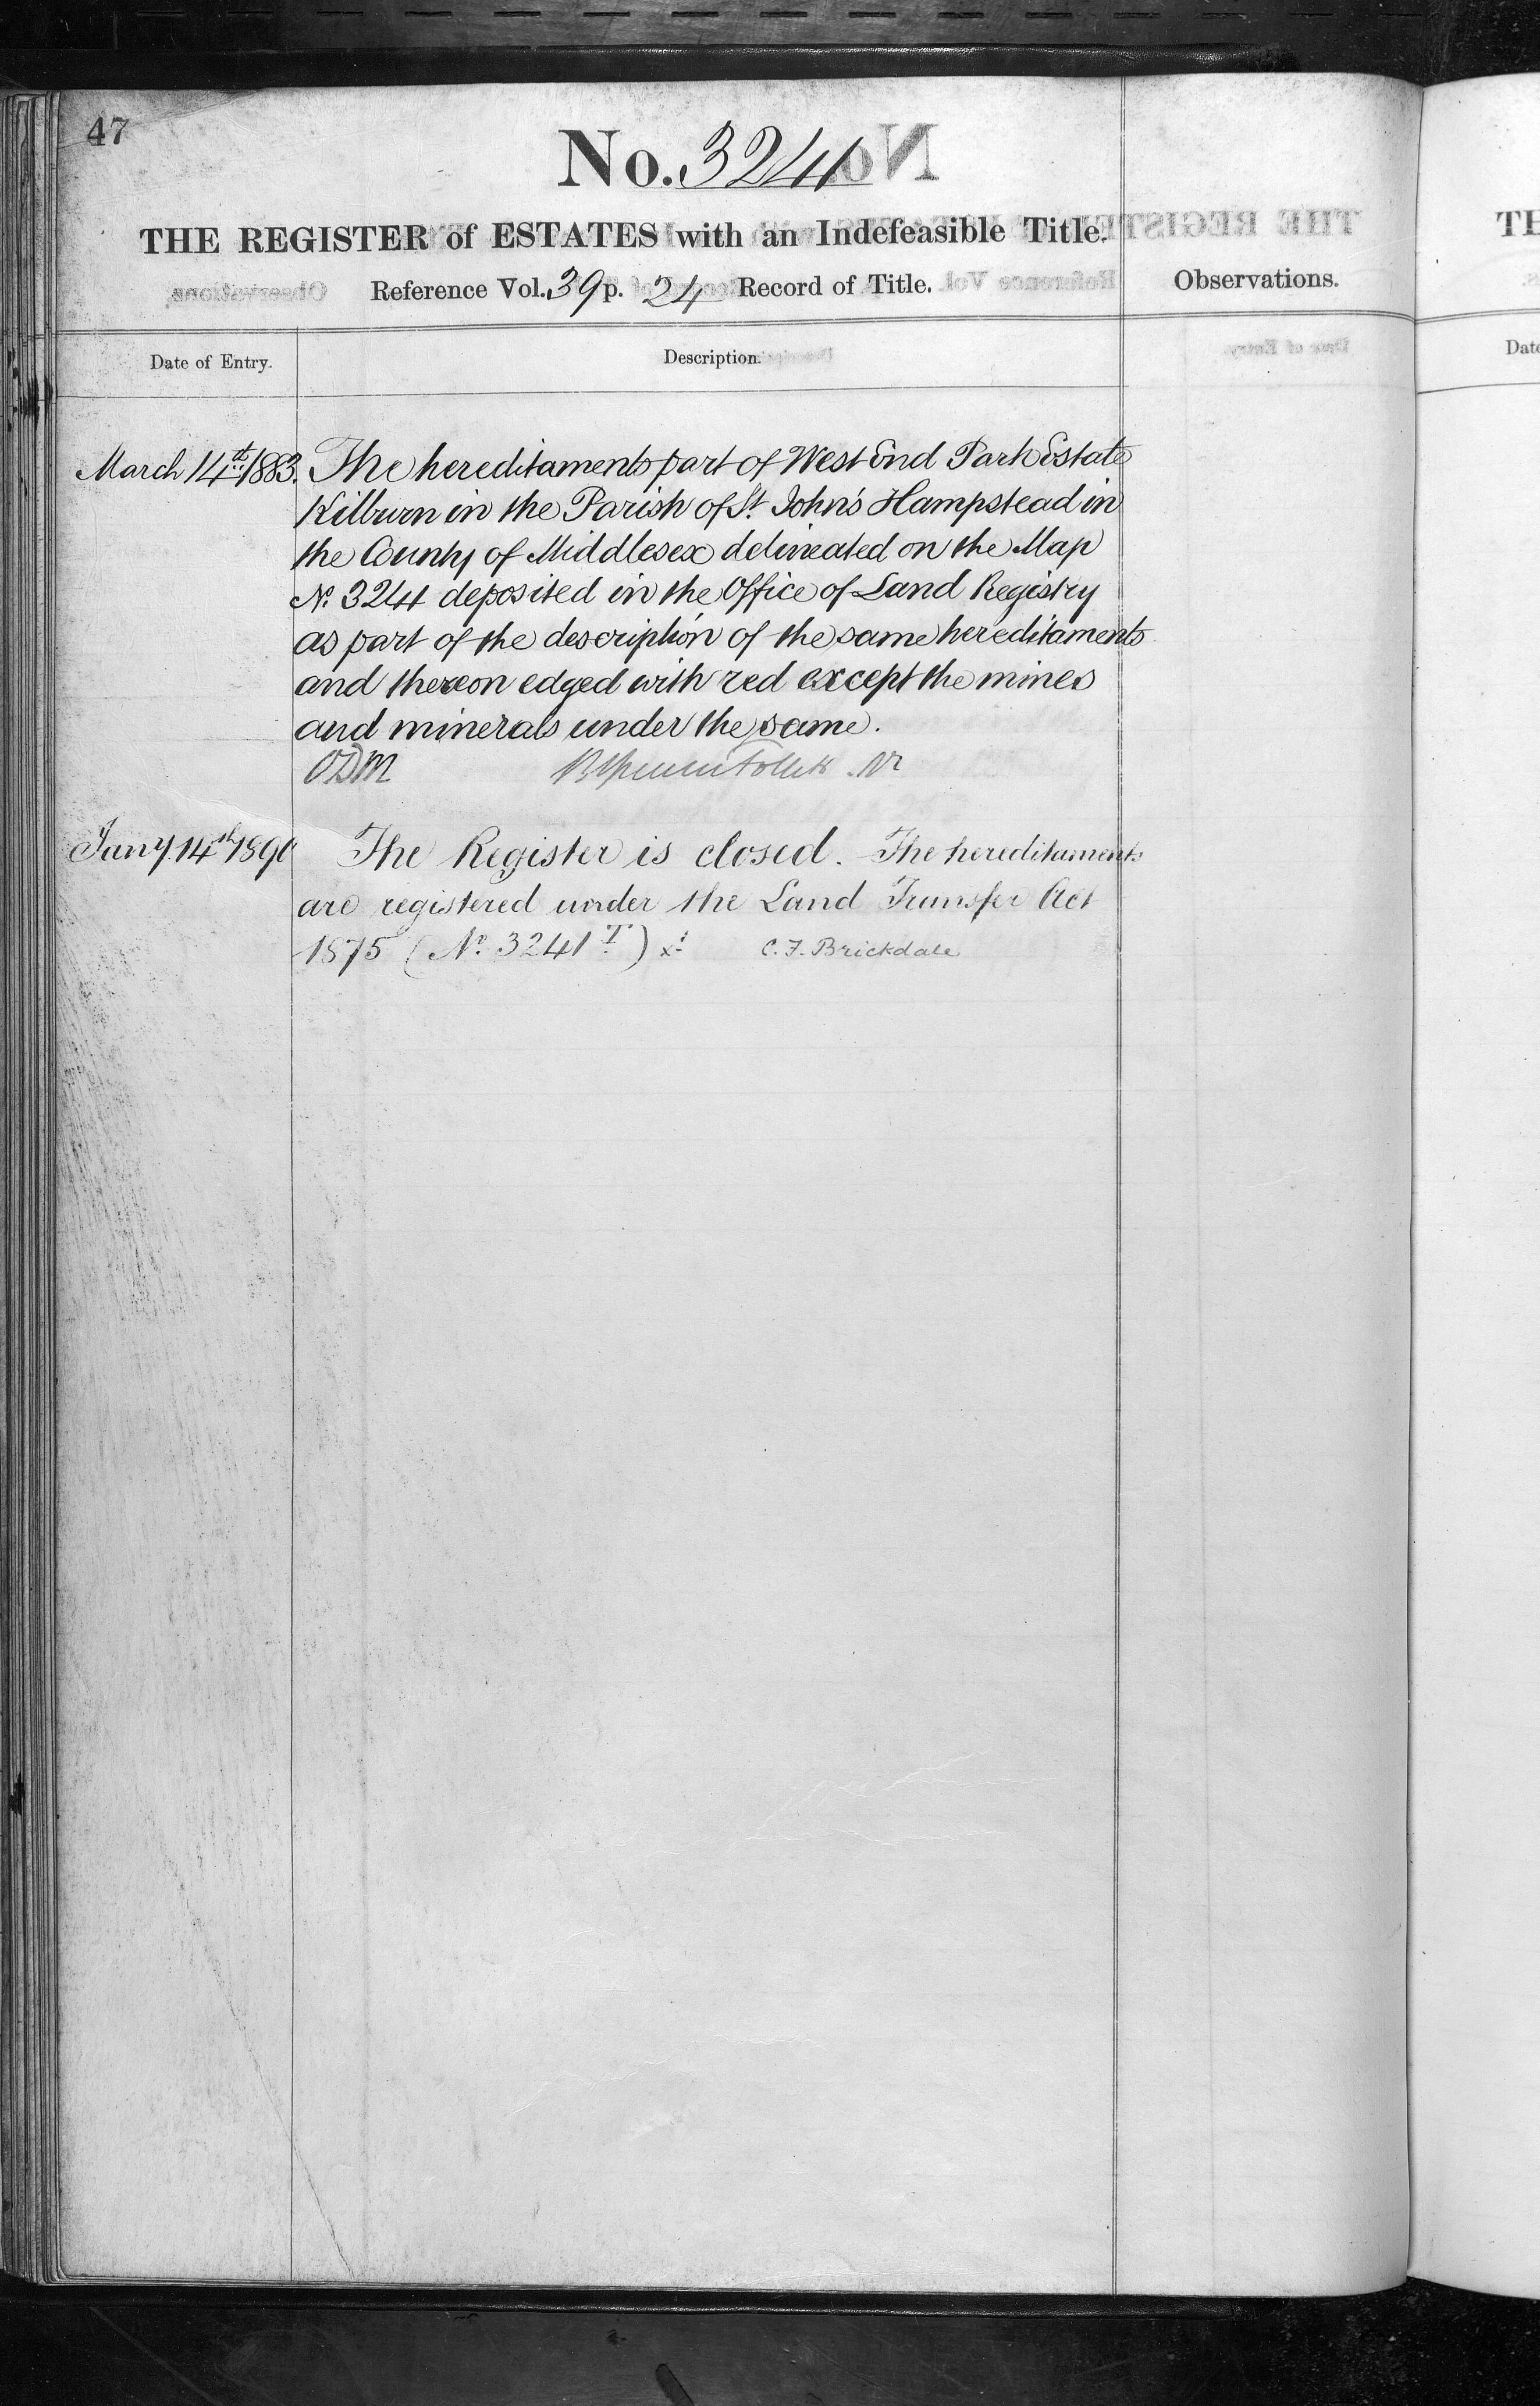 47
No. 3241
THE REGISTER of ESTATES with an Indefeasible Title.
Reference Vol. 39 p. 24 Record of Title.
Observations.
Date of Entry.
Description.
March 14th 1883. The hereditaments part of West End Park Estate
Kilburn in the Parish of St. John's Hampstead in
the County of Middlesex delineated on the Map
No. 3241 deposited in the Office of Land Registry
as part of the description of the same hereditaments
and thereon edged with red except the mines
and minerals under the same.
ODM
Jany 14th 1890 The Register is closed. The hereditaments
are registered under the Land Transfer Act
1875 (No. 3241 T) C. F. Brickdale
TH
Date